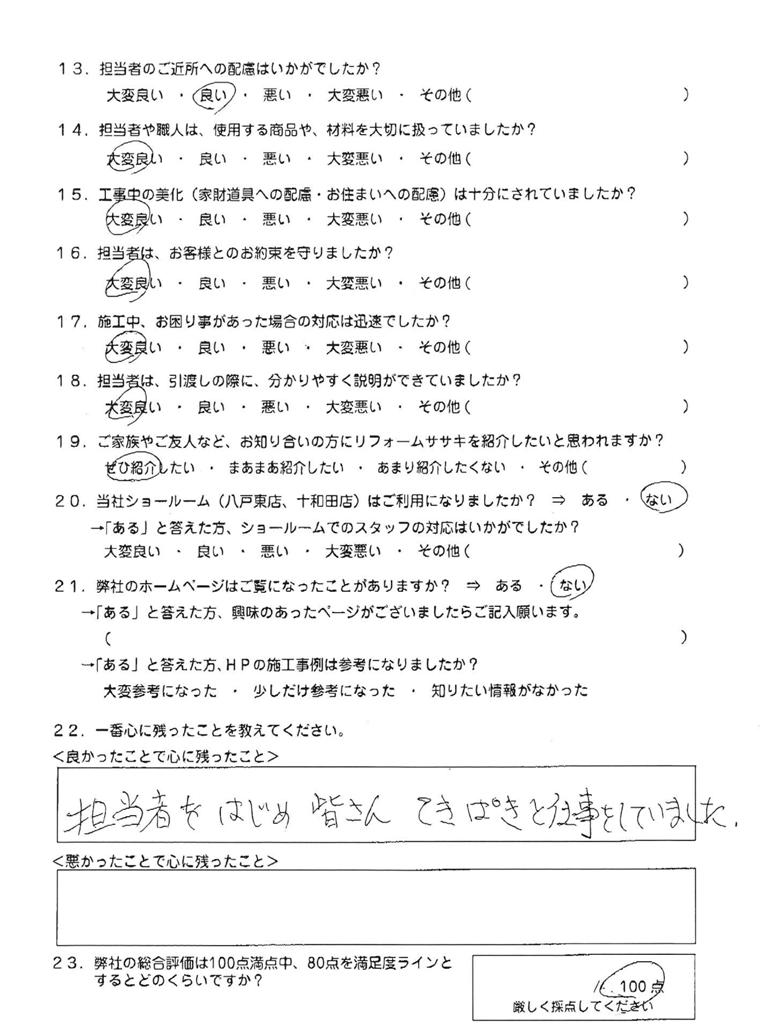 13．担当者のご近所への配慮はいかがでしたか？
大変良い ・ 良い ・ 悪い ・ 大変悪い ・ その他（ ）
14．担当者や職人は、使用する商品や、材料を大切に扱っていましたか？
大変良い ・ 良い ・ 悪い ・ 大変悪い ・ その他（ ）
15．工事中の美化（家財道具への配慮・お住まいへの配慮）は十分にされていましたか？
大変良い ・ 良い ・ 悪い ・ 大変悪い ・ その他（ ）
16．担当者は、お客様とのお約束を守りましたか？
大変良い ・ 良い ・ 悪い ・ 大変悪い ・ その他（ ）
17．施工中、お困り事があった場合の対応は迅速でしたか？
大変良い ・ 良い ・ 悪い ・ 大変悪い ・ その他（ ）
18．担当者は、引渡しの際に、分かりやすく説明ができていましたか？
大変良い ・ 良い ・ 悪い ・ 大変悪い ・ その他（ ）
19．ご家族やご友人など、お知り合いの方にリフォームササキを紹介したいと思われますか？
ぜひ紹介したい ・ まあまあ紹介したい ・ あまり紹介したくない ・ その他（ ）
20．当社ショールーム（八戸東店、十和田店）はご利用になりましたか？ ⇒ ある ・ ない
→「ある」と答えた方、ショールームでのスタッフの対応はいかがでしたか？
大変良い ・ 良い ・ 悪い ・ 大変悪い ・ その他（ ）
21．弊社のホームページはご覧になったことがありますか？ ⇒ ある ・ ない
→「ある」と答えた方、興味のあったページがございましたらご記入願います。
（ ）
→「ある」と答えた方、HPの施工事例は参考になりましたか？
大変参考になった ・ 少しだけ参考になった ・ 知りたい情報がなかった
22．一番心に残ったことを教えてください。
＜良かったことで心に残ったこと＞
担当者をはじめ 皆さん てきぱきと仕事をしていました．
＜悪かったことで心に残ったこと＞
23．弊社の総合評価は100点満点中、80点を満足度ラインと
するとどのくらいですか？
100点
厳しく採点してください